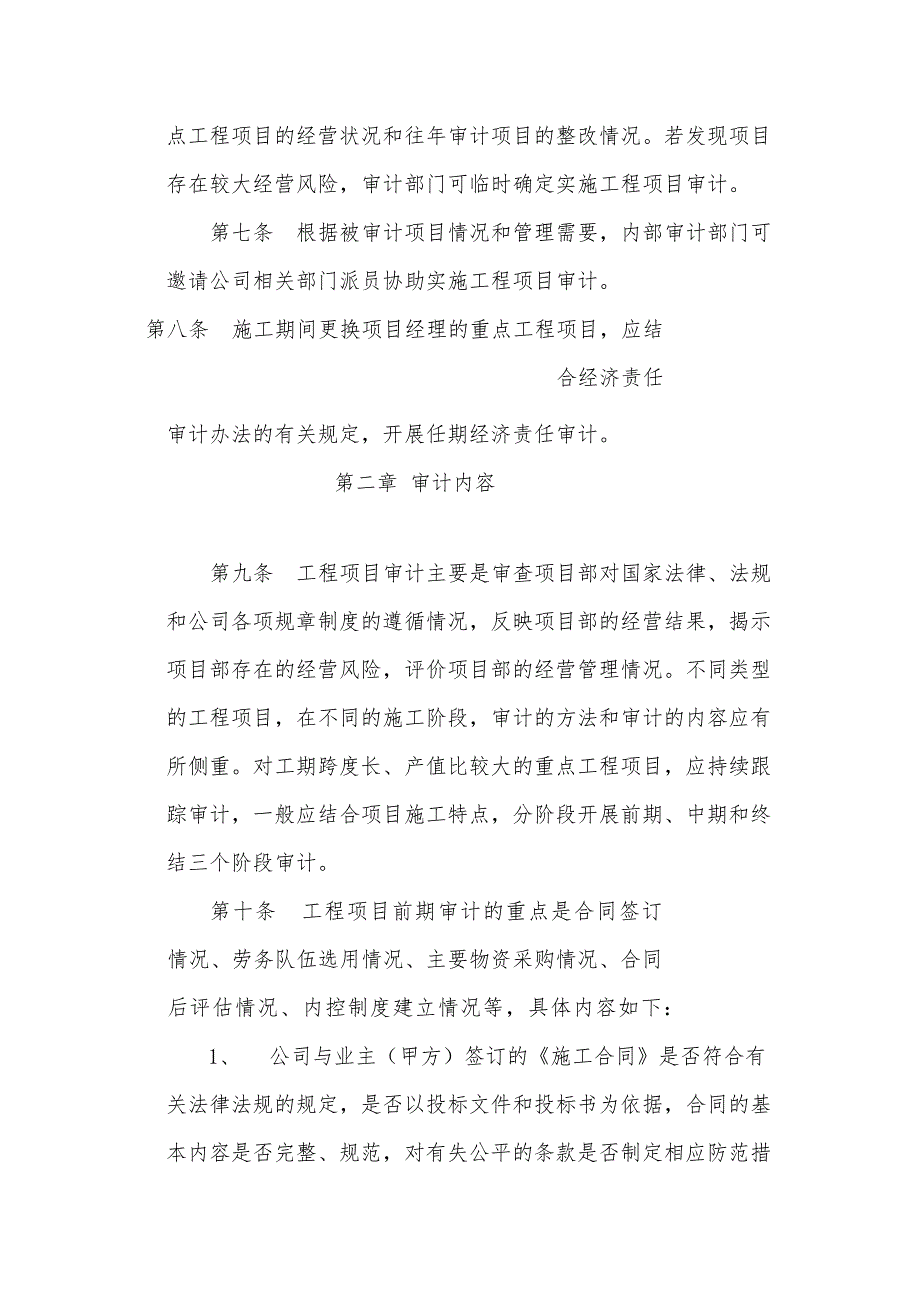 点工程项目的经营状况和往年审计项目的整改情况。若发现项目
存在较大经营风险，审计部门可临时确定实施工程项目审计。
第七条　根据被审计项目情况和管理需要，内部审计部门可
邀请公司相关部门派员协助实施工程项目审计。
第八条　施工期间更换项目经理的重点工程项目，应结
合经济责任
审计办法的有关规定，开展任期经济责任审计。
第二章 审计内容
第九条　工程项目审计主要是审查项目部对国家法律、法规
和公司各项规章制度的遵循情况，反映项目部的经营结果，揭示
项目部存在的经营风险，评价项目部的经营管理情况。不同类型
的工程项目，在不同的施工阶段，审计的方法和审计的内容应有
所侧重。对工期跨度长、产值比较大的重点工程项目，应持续跟
踪审计，一般应结合项目施工特点，分阶段开展前期、中期和终
结三个阶段审计。
第十条　工程项目前期审计的重点是合同签订
情况、劳务队伍选用情况、主要物资采购情况、合同
后评估情况、内控制度建立情况等，具体内容如下：
1、　公司与业主（甲方）签订的《施工合同》是否符合有
关法律法规的规定，是否以投标文件和投标书为依据，合同的基
本内容是否完整、规范，对有失公平的条款是否制定相应防范措